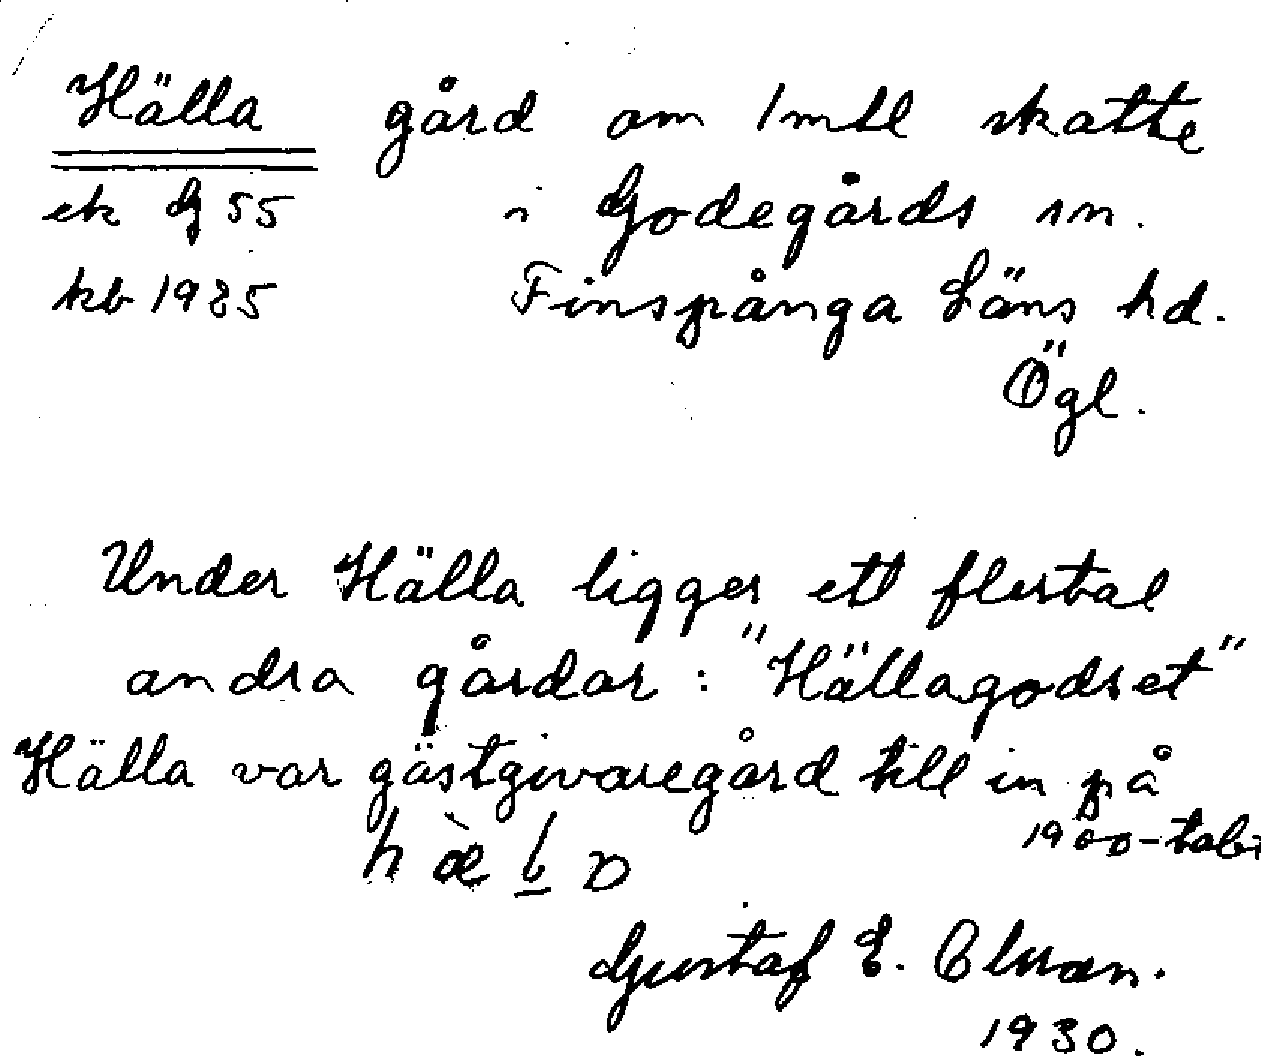 Hälla gård om 1 mtl skatte
ek G 55 i Godegårds sn.
kb 1985 Finspånga Läns hd.
Ögl.
Under Hälla ligger ett flertal
andra gårdar: "Hällagodset"
Hälla var gästgivaregård till in på
1900-talet
Gustaf E.
1930.